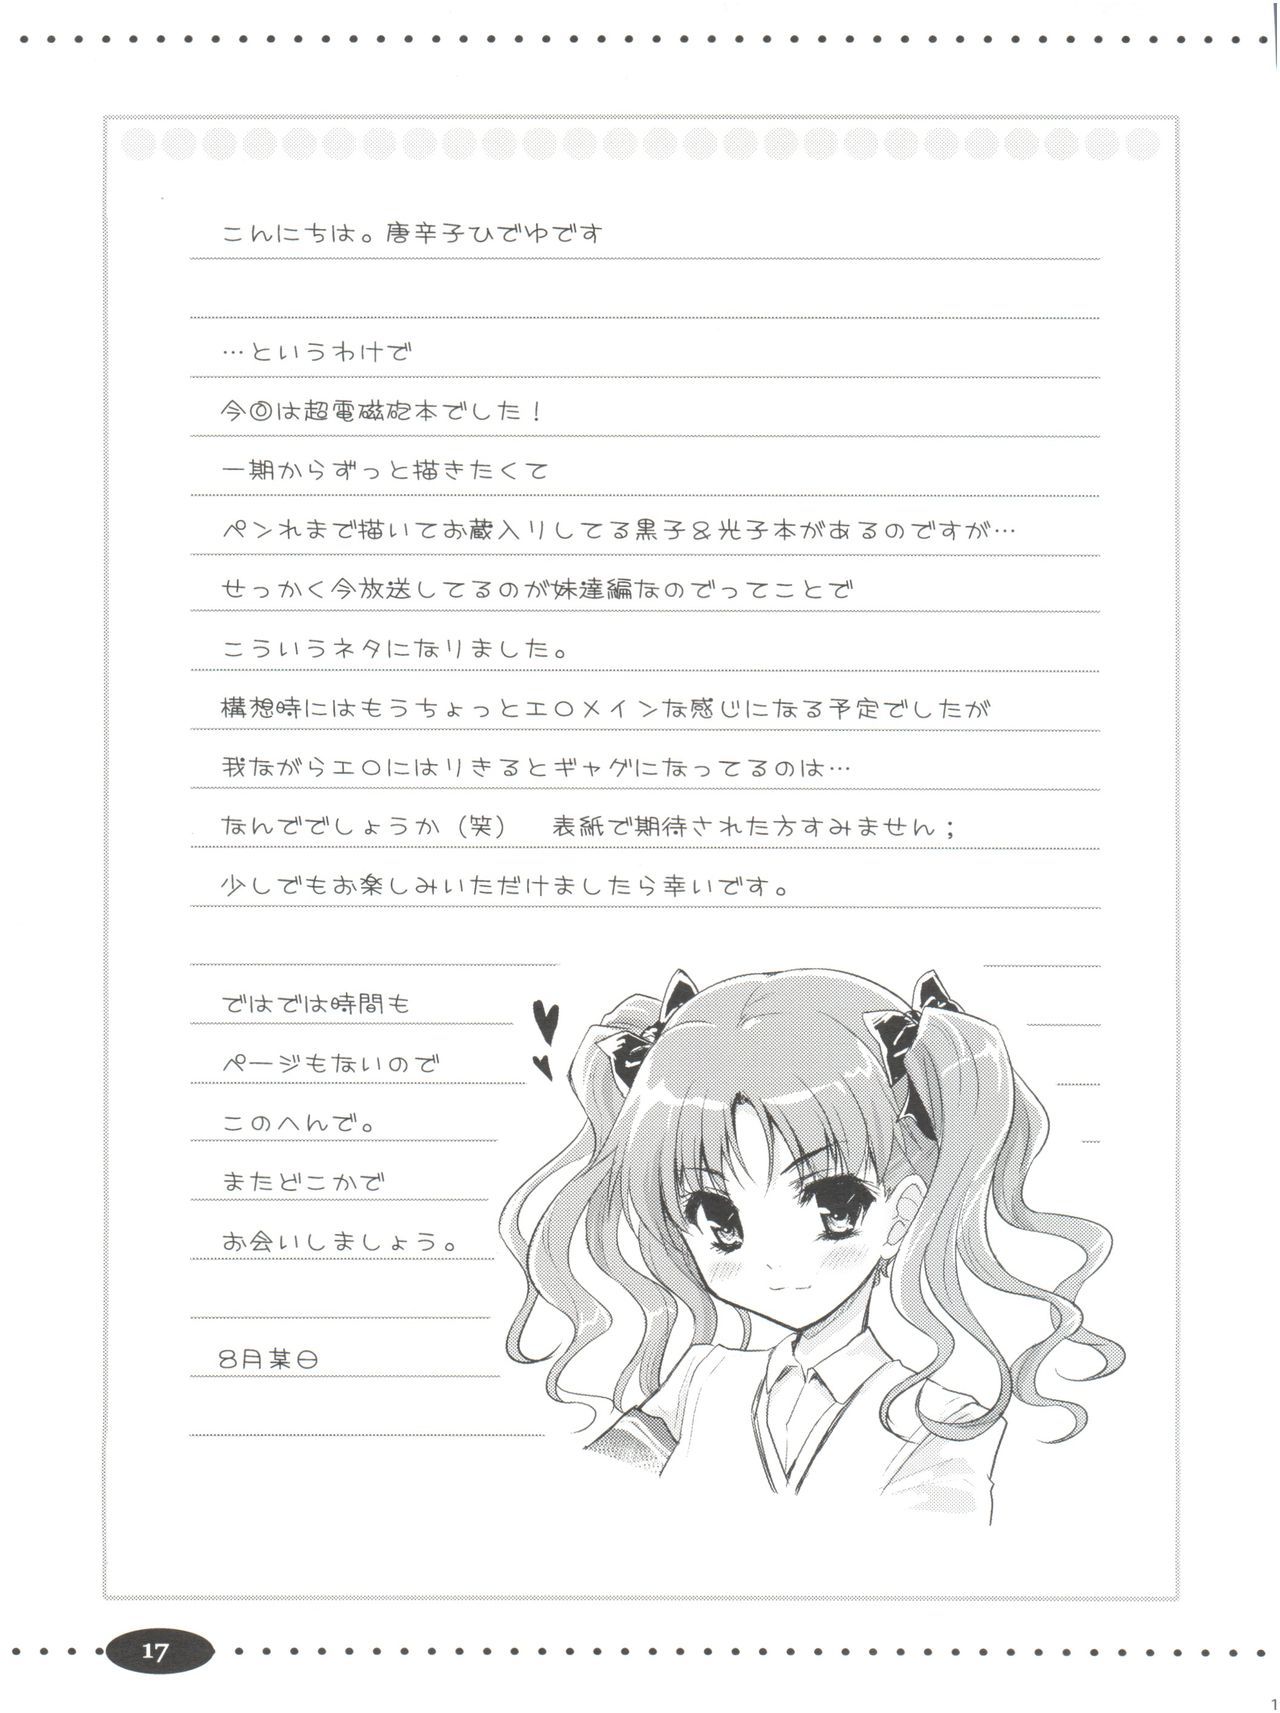 こんにちは。唐辛子ひでゆです
…というわけで
今回は超電磁砲本でした！
一期からずっと描きたくて
ペンれまで描いてお蔵入りしてる黒子＆光子本があるのですが…
せっかく今放送してるのが妹達編なのでってことで
こういうネタになりました。
構想時にはもうちょっとエロメインな感じになる予定でしたが
我ながらエロにはりきるとギャグになってるのは…
なんででしょうか（笑）　表紙で期待された方すみません；
少しでもお楽しみいただけましたら幸いです。
ではでは時間も
ページもないので
このへんで。
またどこかで
お会いしましょう。
8月某日
17
1